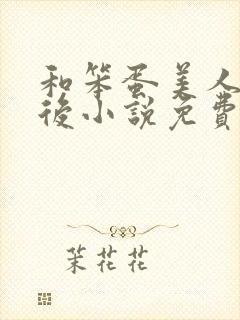 和笨蛋美人
後小說免費
茉花花